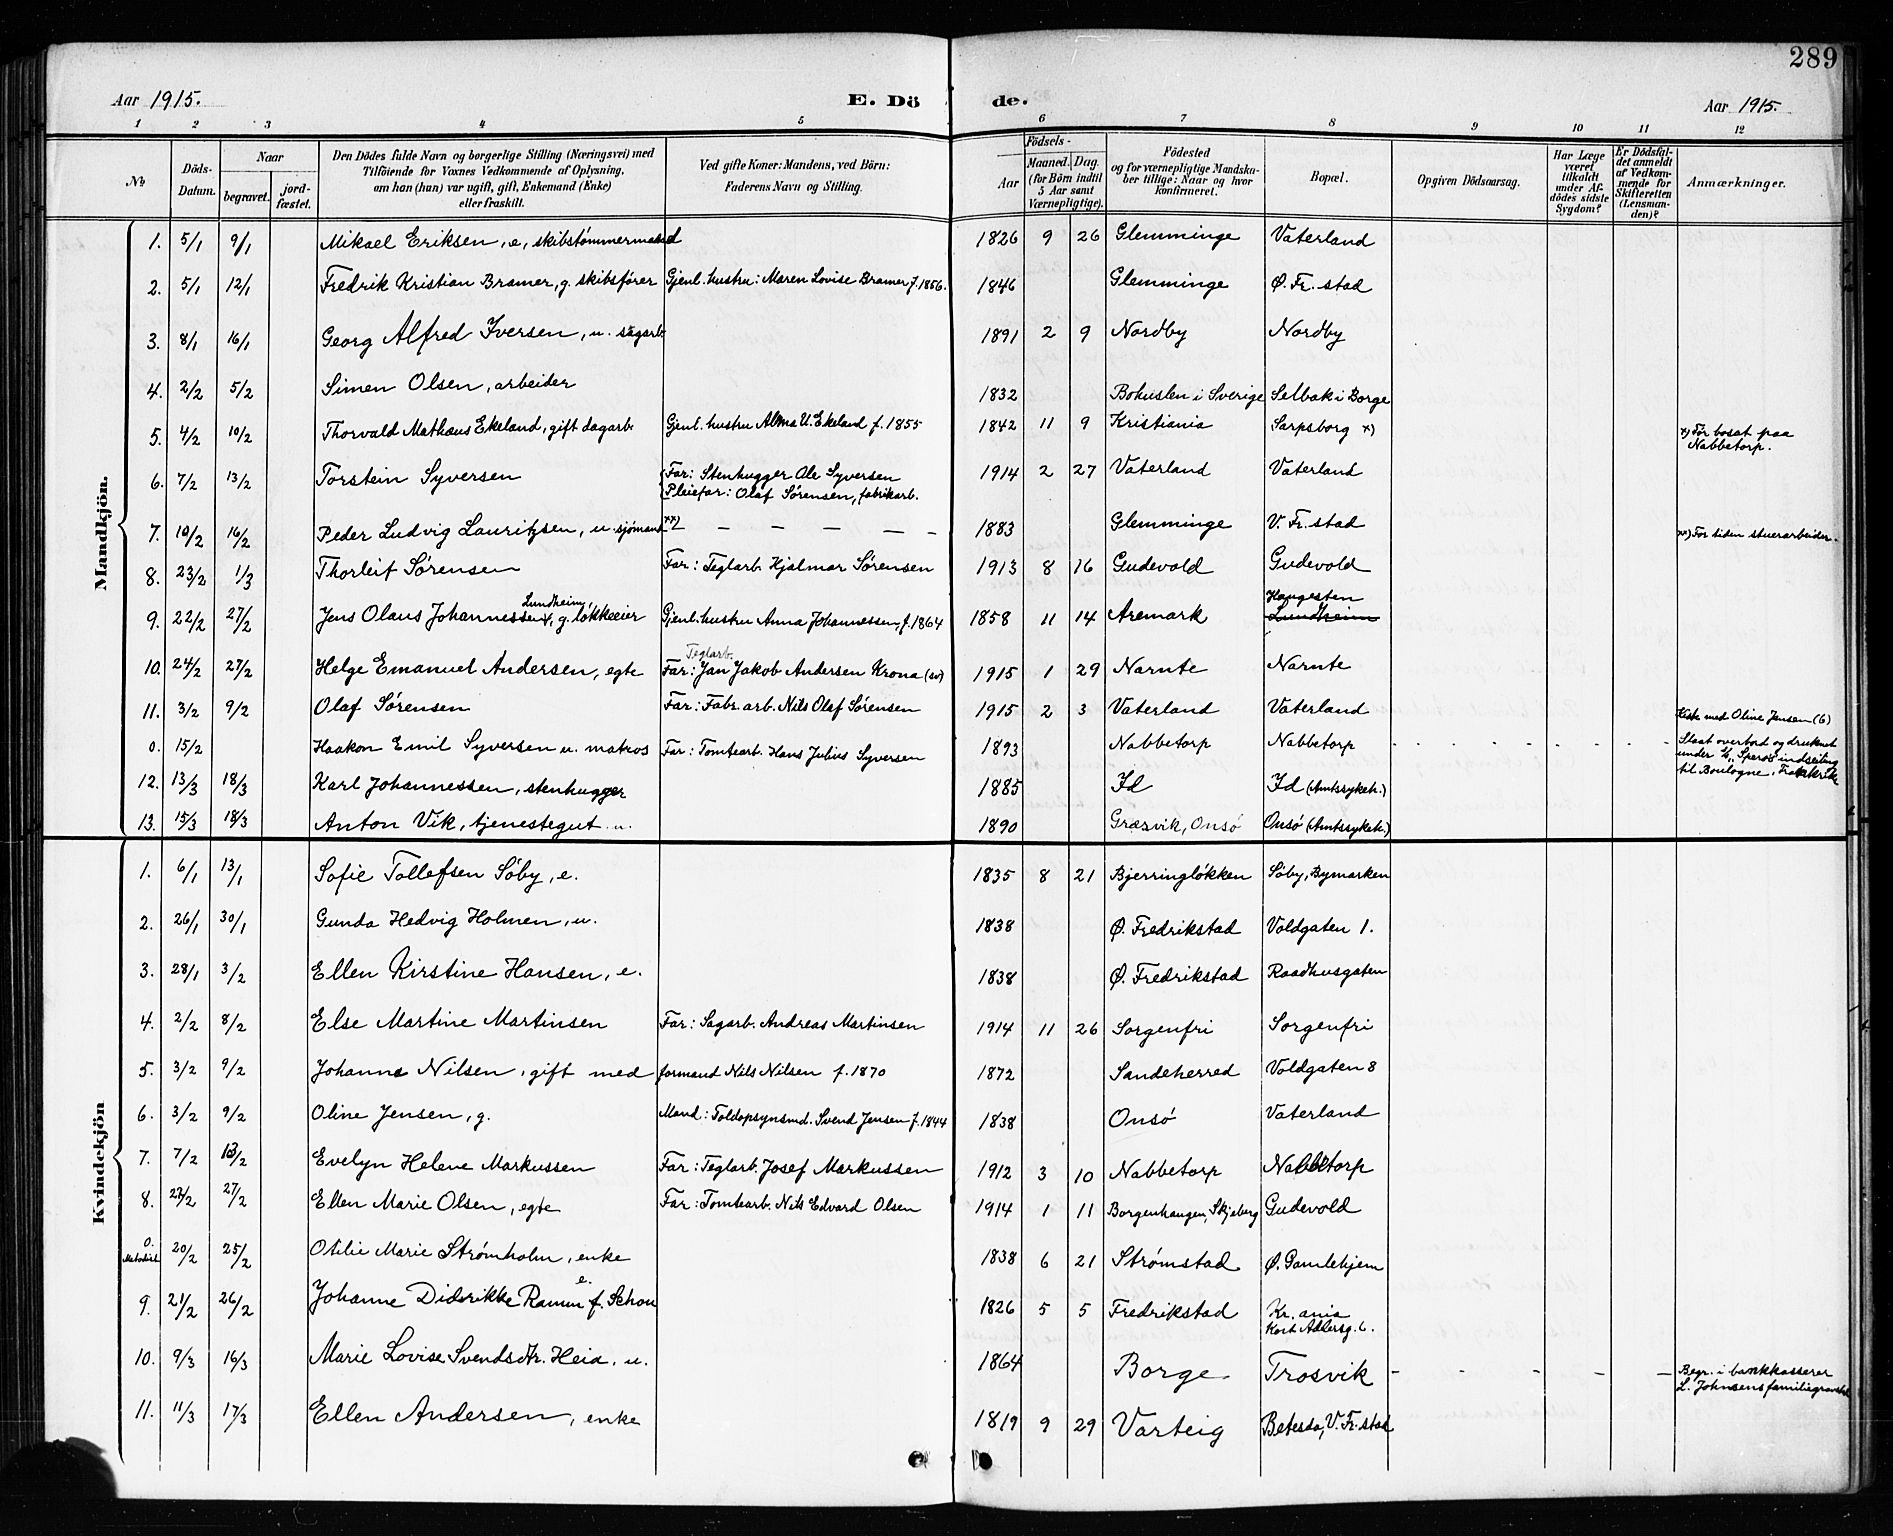 289
Aar 1915. E. Dö de. Aar 1915.
1 2 3 4 5 6 7 8 9 10 11 12
№ Döds-Datum. Naar begravet. jord-fæstet. Den Dödes fulde Navn og borgerlige Stilling (Næringsvei) med Tilföiende for Voxnes Vedkommende af Oplysning, om han (hun) var ugift, gift, Enkemand (Enke) eller fraskilt. Ved gifte Koner: Mandens, ved Börn: Faderens Navn og Stilling. Födsels- Aar Maaned. Dag. (for Börn indtil 5 Aar samt Værnepligtige). Födested og for værnepligtige Mandskaber tillige: Naar og hvor konfirmeret. Bopæl. Opgiven Dödsaarsag. Har Læge været tilkaldt under Afdödes sidste Sygdom? Er Dödsfaldet anmeldt af Vedkommende for Skifteretten (Lensmanden)? Anmærkninger.
Mandkjön.
1. 5/1 9/1 Mikael Eriksen, e, skibstømmermand 1826 9 26 Glemminge Vaterland
2. 5/1 12/1 Fredrik Kristian Bramer, g. skibsfører Gjenl. hustru: Maren Lovise Bramer f. 1856. 1846 Glemminge Ø. Fr. stad
3. 8/1 16/1 Georg Alfred Iversen, u. sagarb. 1891 2 9 Nordby Nordby
4. 2/2 5/2 Simen Olsen, arbeider 1832 Bohuslen i Sverige Selbak i Borge
5. 4/2 10/2 Thorvald Mathæus Ekeland, gift dagarb. Gjenl. hustru Alma U. Ekeland f. 1855 1842 11 9 Kristiania Sarpsborg x) x) Før bosat paa
Nabbetorp.
6. 7/2 13/2 Torstein Syversen Far: Stenhugger Ole Syversen 1914 2 27 Vaterland Vaterland
Pleiefar: Olaf Sørensen, fabrikarb.
7. 10/2 16/2 Peder Ludvig Lauritzsen, u. sjømand xx) — — — — — — 1883 Glemminge V. Fr. stad xx) For tiden stuerarbeider.
8. 23/2 1/3 Thorleif Sørensen Far: Teglarb. Hjalmar Sørensen 1913 8 16 Gudevold Gudevold
Lundheim, Haugesten
9. 22/2 27/2 Jens Olaus Johannessen, g. løkkeeier Gjenl. hustru Anna Johannessen, f. 1864 1858 11 14 Aremark Lundheim
Teglarb.
10. 24/2 27/2 Helge Emanuel Andersen, egte Far: Jan Jakob Andersen Krona (sv) 1915 1 29 Narnte Narnte
11. 3/2 9/2 Olaf Sørensen Far: Fabr. arb. Nils Olaf Sørensen 1915 2 3 Vaterland Vaterland Kiste med Oline Jensen (6)
0. 15/2 Haakon Emil Syversen u. matros Far: Tomtearb. Hans Julius Syversen 1893 Nabbetorp Nabbetorp Slaat overbord og druknet
under "Speros" indseiling
til Boulogne, Frankrike
12. 13/3 18/3 Karl Johannessen, stenhugger 1885 Id Id (Amtssykeh.)
13. 15/3 18/3 Anton Vik, tjenestegut u. 1890 Græsvik, Onsø Onsø (Amtssykeh.)
Kvindekjön
1. 6/1 13/1 Sofie Tollefsen Söby, e. 1835 8 21 Bjerringløkken Søby, Bymarken
2. 26/1 30/1 Gunda Hedvig Holmen, u. 1838 Ø. Fredrikstad Voldgaten 1.
3. 28/1 3/2 Ellen Kirstine Hansen, e. 1838 Ø. Fredrikstad Raadhusgaten
4. 2/2 8/2 Else Martine Martinsen Far: Sagarb. Andreas Martinsen 1914 11 26 Sorgenfri Sorgenfri
5. 3/2 9/2 Johanne Nilsen, gift med formand Nils Nilsen f. 1870 1872 Sandeherred Voldgaten 8
6. 3/2 9/2 Oline Jensen, g. Mand: Toldopsynsmd. Svend Jensen f. 1844 1838 Onsø Vaterland
7. 7/2 13/2 Evelyn Helene Markussen Far: Teglarb. Josef Markussen 1912 3 10 Nabbetorp Nabbetorp
8. 23/2 27/2 Ellen Marie Olsen, egte Far: Tomtearb. Nils Edvard Olsen 1914 1 11 Borgenhaugen, Skjeberg Gudevold
0. Metodist 20/2 25/2 Otilie Marie Strømholm, enke 1838 6 21 Strømstad Ø. Gamlehjem
9. 21/2 26/2 Johanne Didrikke Ramm e. f. Schou 1826 5 5 Fredrikstad Kr. ania
Kort Adlersg. 6.
10. 9/3 16/3 Marie Lovise Svendsdtr. Heia, u. 1864 Borge Trosvik — — — Begr. i bankkasserer
L. Johnsens familiegravsted
11. 11/3 17/3 Ellen Andersen, enke 1819 9 29 Varteig Betesda, V. Fr. stad